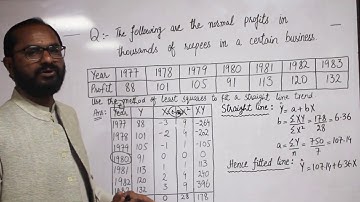 Q:- The following are the normal profits in
thousands of rupees in a certain business.
Year 1977 1978 1979 1980 1981 1982 1983
Profit 88 101 105 91 113 120 132
Use the method of least squares to fit a straight line trend
Ans:
Year Y X X² XY
1977 88 -3 9 -264
1978 101 -2 4 -202
1979 105 -1 1 -105
1980 91 0 0 0
1981 113 1 1 113
1982 120 2 4 240
1983 132 3 9 396
0 28 178
Straight line:- Ŷ = a + bX
b = ΣXY/ΣX² = 178/28 = 6.36
a = ΣY/n = 750/7 = 107.14
Hence fitted line:- Ŷ = 107.14 + 6.36X